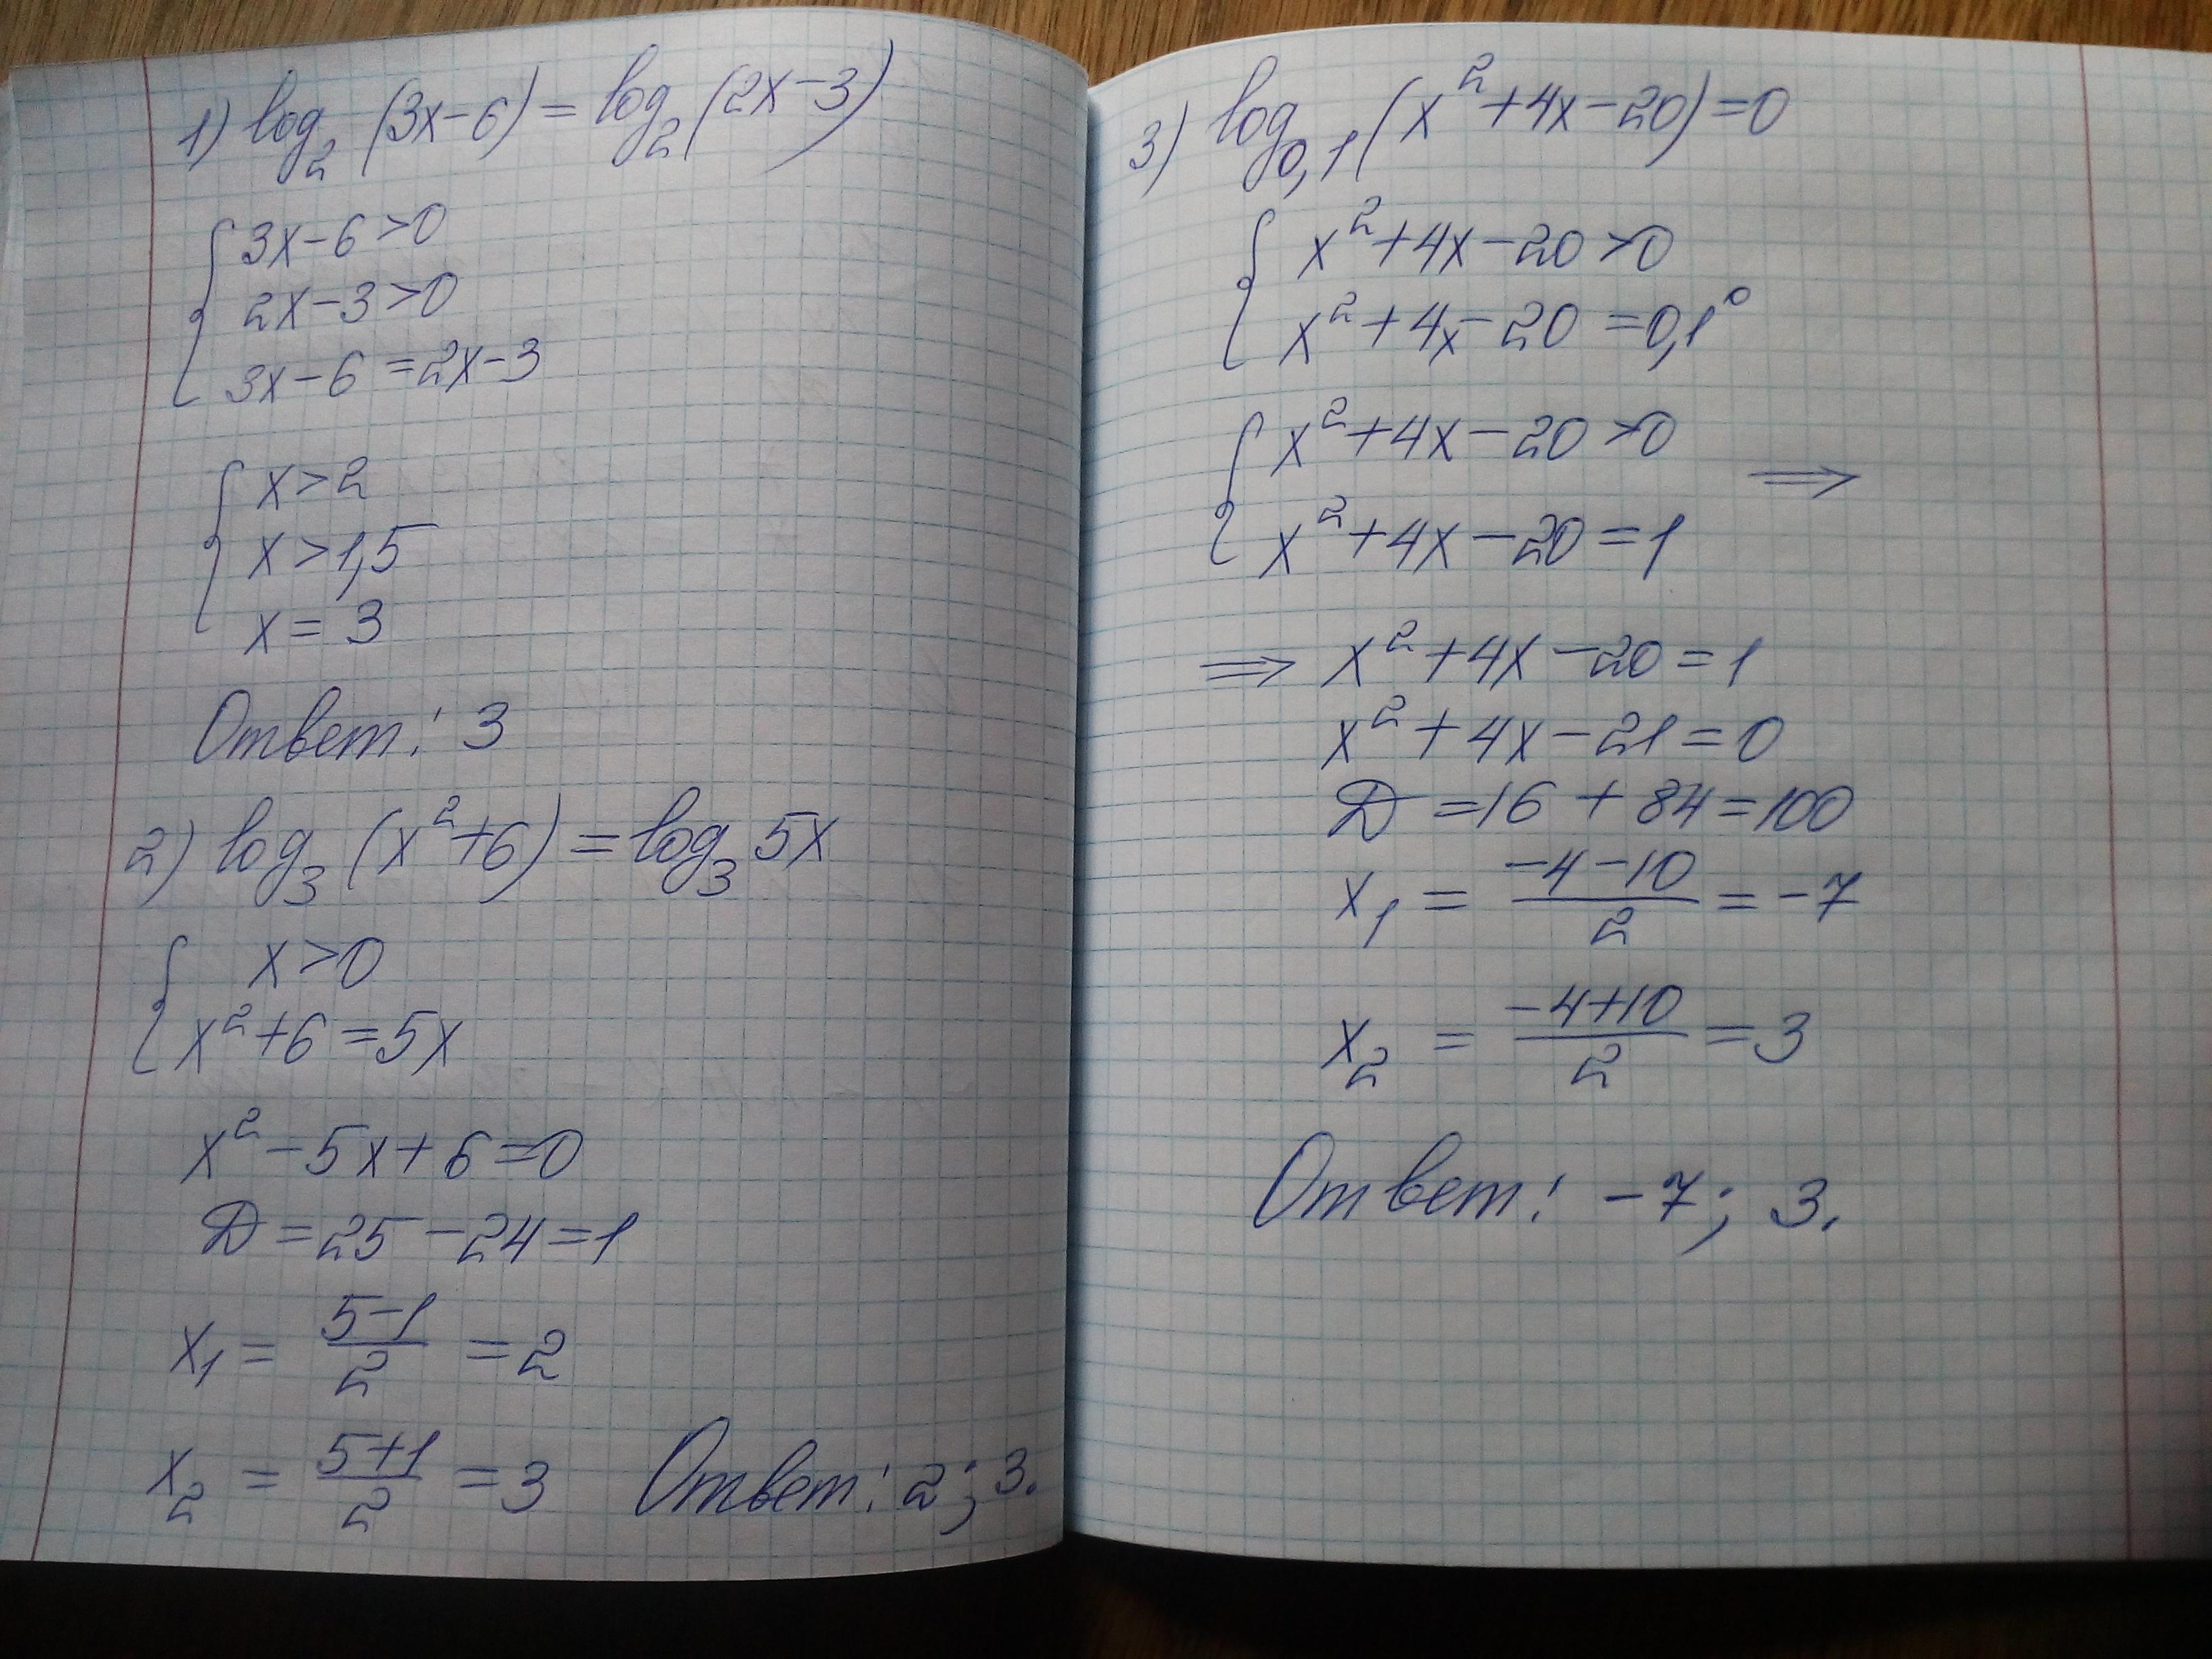 1) log₂ (3x-6) = log₂ (2x-3)
3x-6>0
2x-3>0
3x-6=2x-3
x>2
x>1,5
x=3
Ответ: 3
2) log₃ (x²+6) = log₃ 5x
x>0
x²+6=5x
x²-5x+6=0
D=25-24=1
x₁ = (5-1)/2 = 2
x₂ = (5+1)/2 = 3 Ответ: 2; 3.
3) log₀,₁ (x²+4x-20)=0
x²+4x-20>0
x²+4x-20=0,1⁰
x²+4x-20>0
⇒
x²+4x-20=1
⇒ x²+4x-20=1
x²+4x-21=0
D=16+84=100
x₁ = (-4-10)/2 = -7
x₂ = (-4+10)/2 = 3
Ответ: -7; 3.